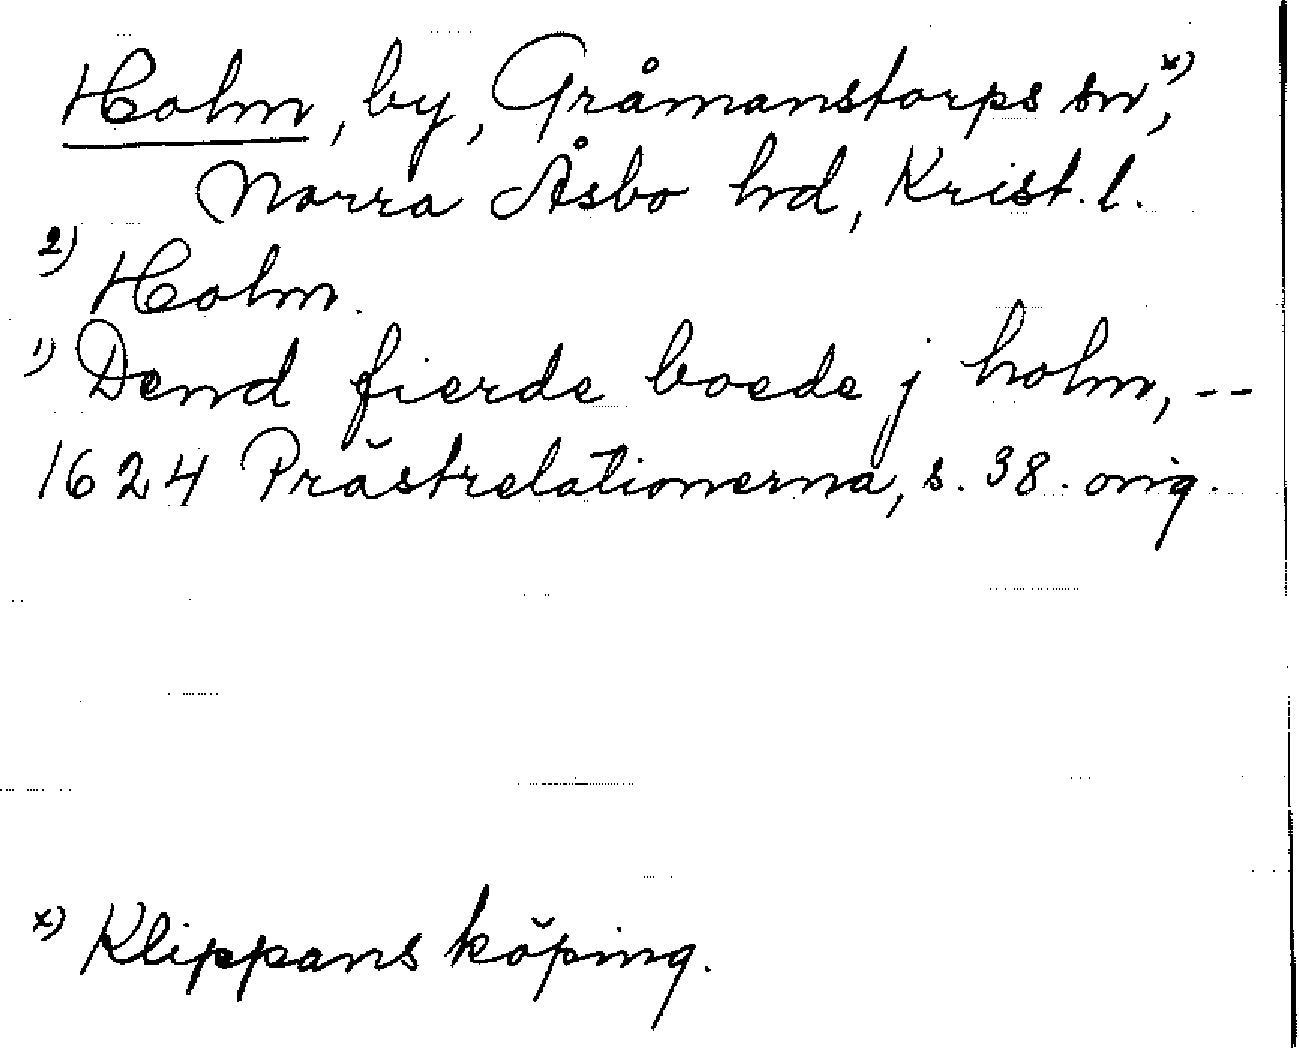 Holm, by, Gråmanstorps sn x),
Norra Åsbo hd, Krist. l.
2) Holm.
1) Dend fierde boede j holm, --
1624 Prästrelationerna, s. 38. orig.
x) Klippans köping.